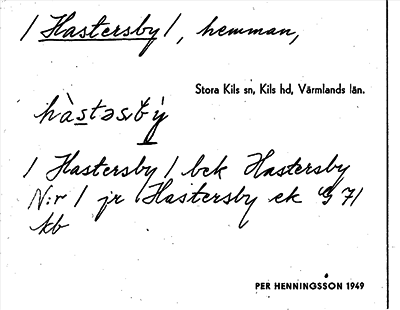 / Hastersby /, hemman,
Stora Kils sn, Kils hd, Värmlands län.
hàstəsbỳ
/ Hastersby / bek Hastersby
N:r / jr Hastersby ek G 71
kb
PER HENNINGSSON 1949